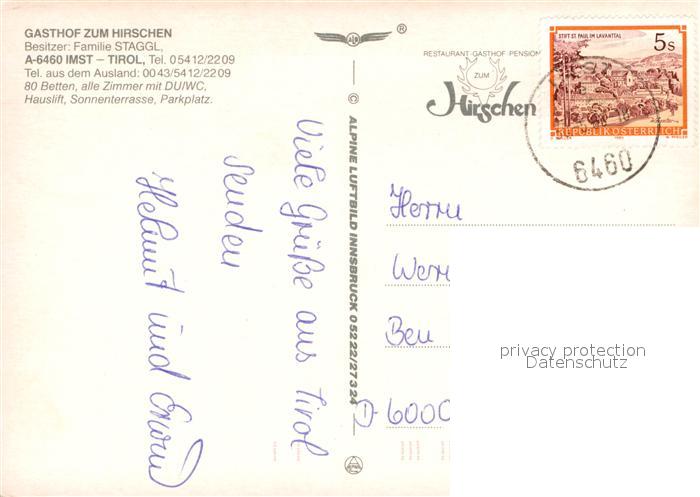 GASTHOF ZUM HIRSCHEN
Besitzer: Familie STAGGL,
A-6460 IMST – TIROL, Tel. 05412/2209
Tel. aus dem Ausland: 0043/5412/2209
80 Betten, alle Zimmer mit DU/WC,
Hauslift, Sonnenterrasse, Parkplatz.
RESTAURANT-GASTHOF-PENSION
ZUM
Hirschen
STIFT ST. PAUL IM LAVANTTAL
5 S
REPUBLIK ÖSTERREICH
6460
© ALPINE LUFTBILD INNSBRUCK 05222/27324
Viele Grüße aus Tirol
senden
Helmut und Erwin
Herrn
Wer
Ben
D-6000
privacy protection
Datenschutz